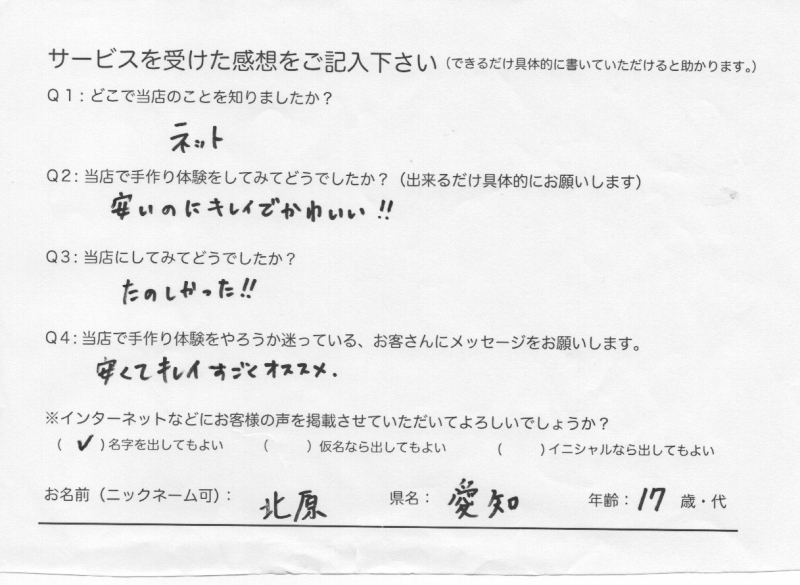 サービスを受けた感想をご記入下さい（できるだけ具体的に書いていただけると助かります。）
Q1：どこで当店のことを知りましたか？
ネット
Q2：当店で手作り体験をしてみてどうでしたか？（出来るだけ具体的にお願いします）
安いのにキレイでかわいい!!
Q3：当店にしてみてどうでしたか？
たのしかった!!
Q4：当店で手作り体験をやろうか迷っている、お客さんにメッセージをお願いします。
安くてキレイすごくオススメ.
※インターネットなどにお客様の声を掲載させていただいてよろしいでしょうか？
（✓）名字を出してもよい （ ）仮名なら出してもよい （ ）イニシャルなら出してもよい
お名前（ニックネーム可）： 北原 県名： 愛知 年齢：17 歳・代